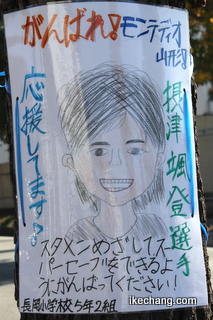 がんばれ!モンテディオ
山形!
摂津颯登選手
応援してます!
スタメンめざしてス
ーパーセーブをできるよ
うにがんばってください!
長岡小学校5年2組
ikechang.com